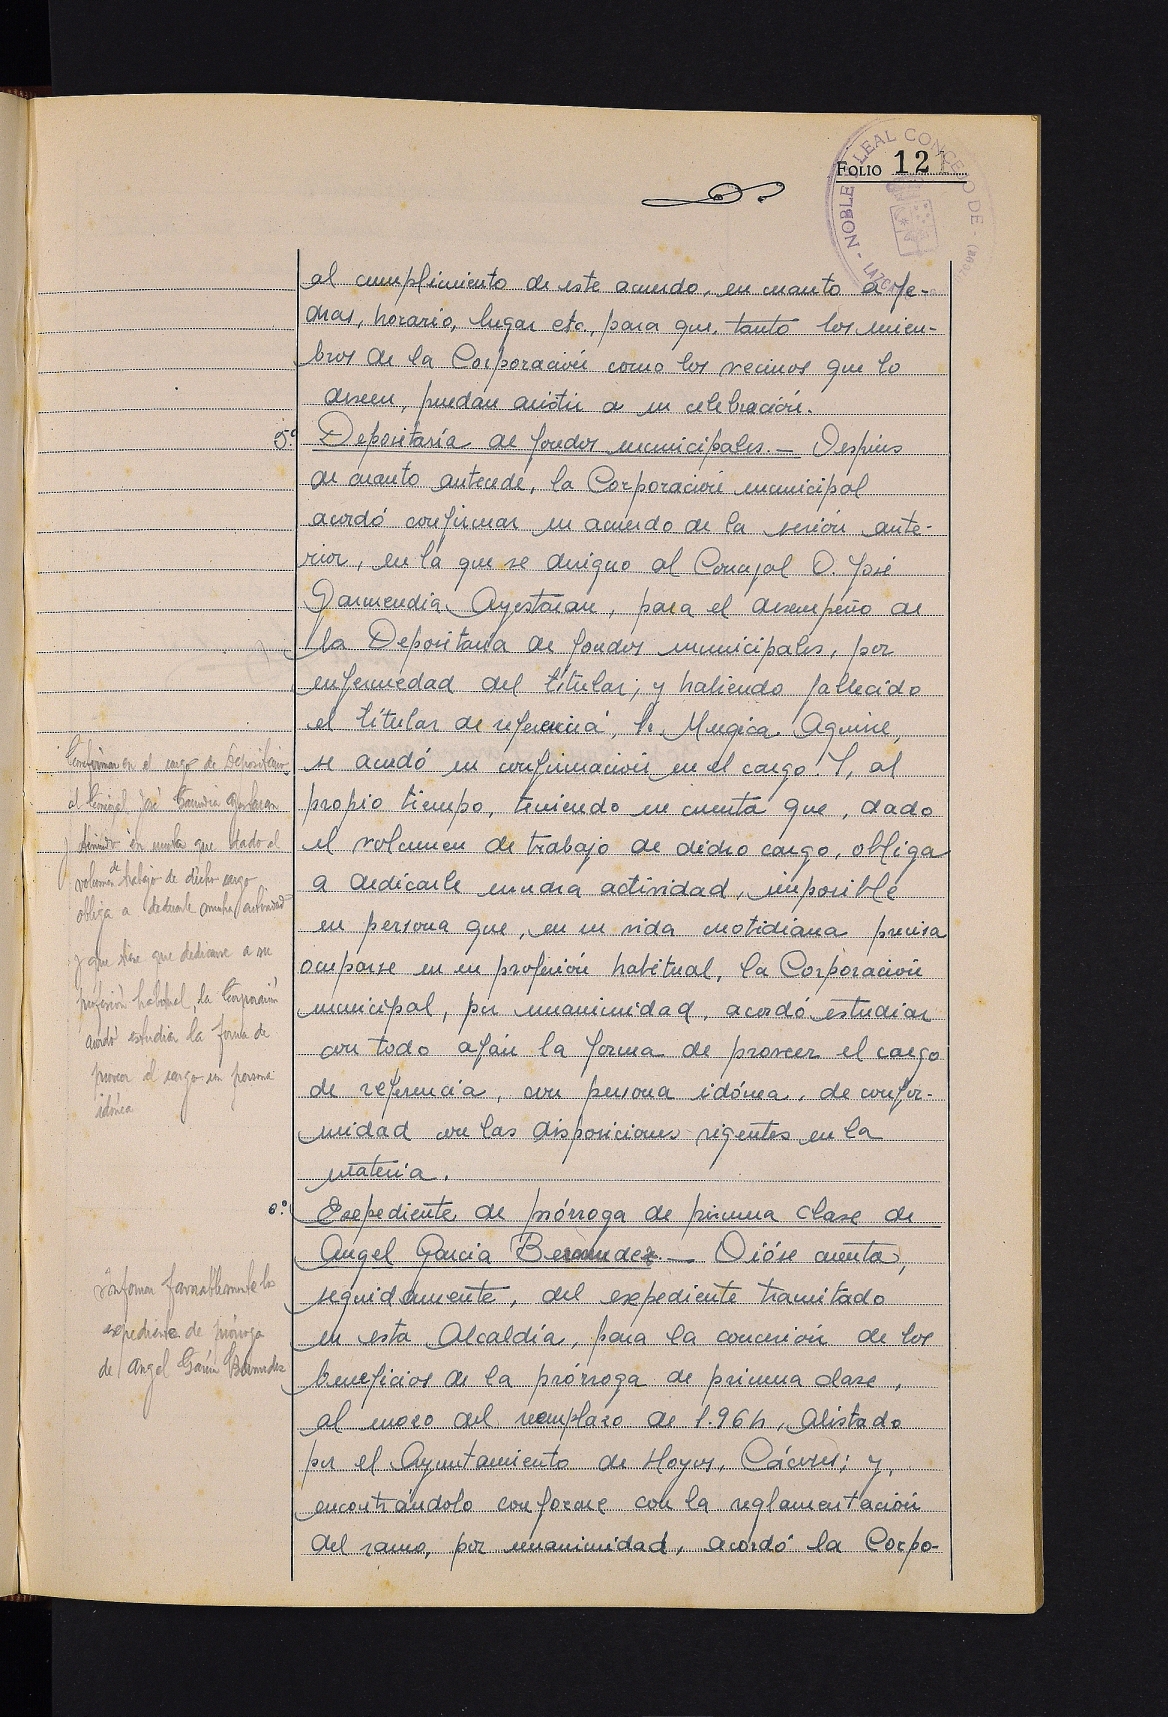 FOLIO 121
NOBLE LEAL CONCEJO DE
al cumplimiento de este acuerdo, en cuanto a fe-
chas, horario, lugar etc., para que, tanto los miem-
bros de la Corporación como los vecinos que lo
deseen, puedan asistir a su celebración.
5º Depositaría de fondos municipales.— Después
de cuanto antecede, la Corporación municipal
acordó confirmar su acuerdo de la sesión ante-
rior, en la que se designo al Concejal D. José
Garmendia Ayestaran, para el desempeño de
la Depositaria de fondos municipales, por
enfermedad del titular; y habiendo fallecido
el titular de referencia, Sr. Mugica Aguirre,
se acordó su confirmación en el cargo. Y, al
propio tiempo, teniendo en cuenta que, dado
el volumen de trabajo de dicho cargo, obliga
a dedicarle mucha actividad, imposible
en persona que, en su vida cuotidiana precisa
ocuparse en su profesión habitual, la Corporación
municipal, por unanimidad, acordó estudiar
con todo afán la forma de proveer el cargo
de referencia, con persona idónea, de confor-
midad con las disposiciones vigentes en la
materia.
Confirmar en el cargo de Depositario
al Concejal José Garmendia Ayestaran
y teniendo en cuenta que dado el
volumen de trabajo de dicho cargo
obliga a dedicarle mucha actividad
y que tiene que dedicarse a su
profesión habitual, la Corporación
acordó estudiar la forma de
proveer el cargo en persona
idónea
6º Expediente de prórroga de primera clase de
Angel Garcia Bermudez.— Dióse cuenta,
seguidamente, del expediente tramitado
en esta Alcaldía, para la concesión de los
beneficios de la prórroga de primera clase,
al mozo del reemplazo de 1.964, alistado
por el Ayuntamiento de Hoyos, Cáceres; y,
encontrándolo conforme con la reglamentación
del ramo, por unanimidad, acordó la Corpo-
Informar favorablemente los
expediente de prórroga
de Angel García Bermudez